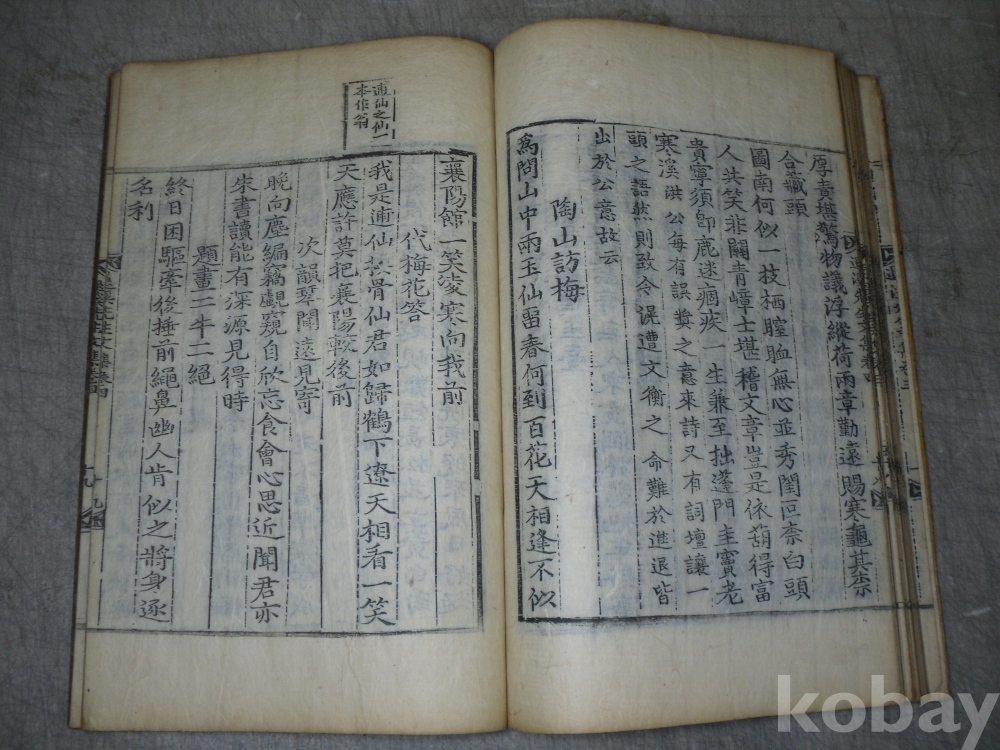 厚責堪驚物議浮縱荷兩章勤遠賜寒龜其柰
合藏頭
圖南何似一枝栖膣腄無心並秀閨叵柰白頭
人共笑非關青嶂士堪稽文章豈是依葫得富
貴寧須卽鹿迷痼疾一生兼至拙蓬門圭竇老
寒溪洪公每有誤奬之意來詩又有詞壇讓一
頭之語然則致令混遭文衡之命難於進退皆
出於公意故云
陶山訪梅
爲問山中兩玉仙留春何到百花天相逢不似
逋仙之仙一
本作翁
襄陽館一笑凌寒向我前
代梅花答
我是逋仙換骨仙君如歸鶴下遼天相看一笑
天應許莫把襄陽較後前
次韻琴聞遠見寄
晩向塵編竊覰窺自欣忘食會心思近聞君亦
朱書讀能有深源見得時
題畫二牛二絕
終日困驅牽後捶前繩鼻幽人肯似之將身逐
名利
退溪先生文集卷四
十九
kobay